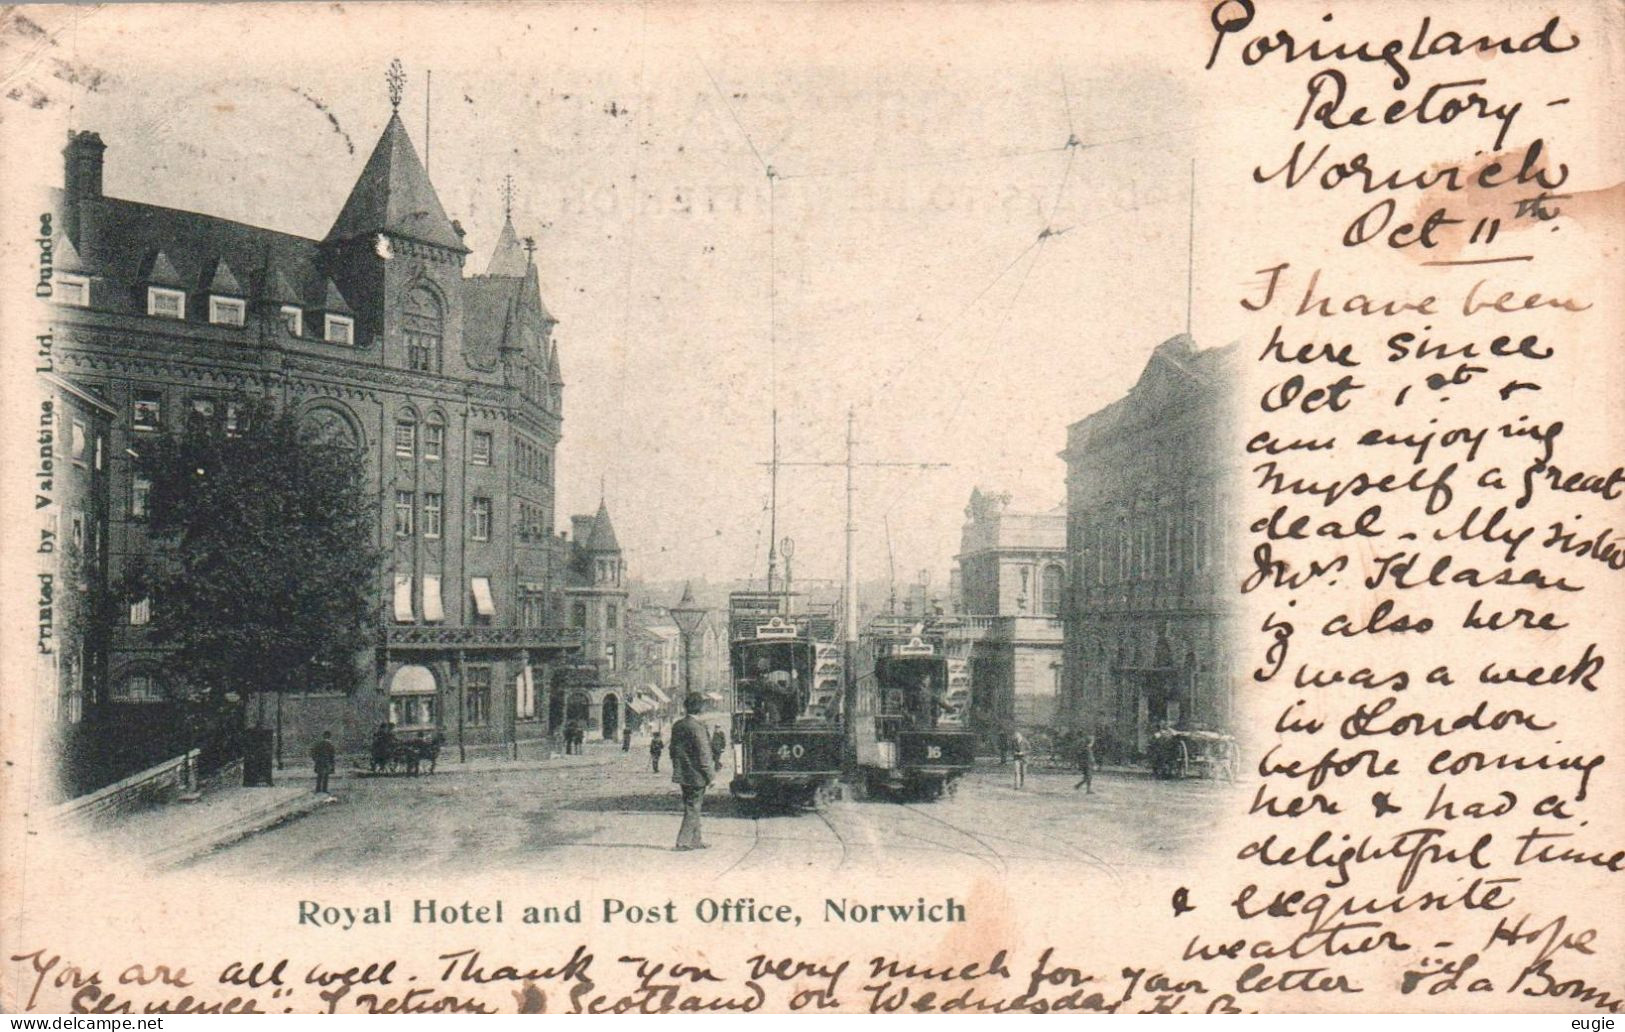 Poringland
Rectory -
Norwich
Oct 11th.
I have been
here since
Oct 1st &
am enjoying
myself a great
deal - My sister
Mrs. Klasen
is also here
I was a week
in London
before coming
here & had a
delightful time
& exquisite
weather - Hope
You are all well. Thank you very much for your letter & "La Bonne
Semence". I return Scotland on Wednesday K. B.
Royal Hotel and Post Office, Norwich
Printed by Valentine. Ltd. Dundee
40
16
eugie